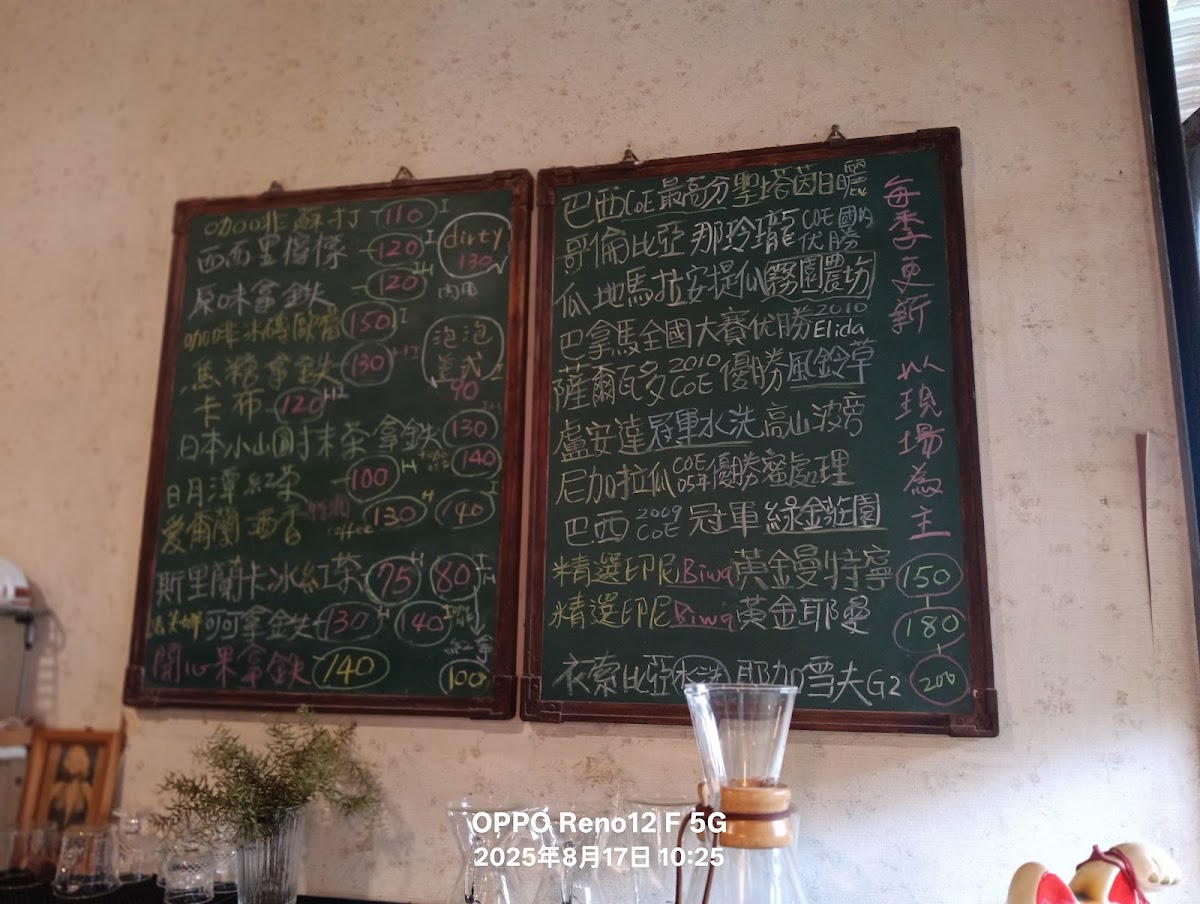 咖啡蘇打 110 I
西西里檸檬 120 I
原味拿鐵 120 IH
咖啡冰磚歐蕾 150 I
焦糖拿鐵 130 HI
卡布 120 H
日本小山園抹茶拿鐵 130
140
日月潭紅茶 100 H
愛爾蘭酒香 coffee 130 H 140 I
斯里蘭卡冰紅茶 75 H 80 I
可可拿鐵 130 H 140 I
開心果拿鐵 140
100
dirty
130
內用
泡泡
美式
90
巴西COE最高分聖塔茵日曬
哥倫比亞 那玲瓏 COE國內优勝
瓜地馬拉安提瓜霧園農坊
巴拿馬全國大賽优勝 2010 Elida
薩爾瓦多 2010 COE 優勝風鈴草
盧安達冠軍水洗高山波旁
尼加拉瓜 COE 05年優勝蜜處理
巴西 2009 COE 冠軍綠金莊園
精選印尼Biwa黃金曼特寧 150
精選印尼Biwa黃金耶曼 180
衣索比亞水洗耶加雪夫G2 200
每季更新 以現場為主
OPPO Reno12 F 5G
2025年8月17日 10:25